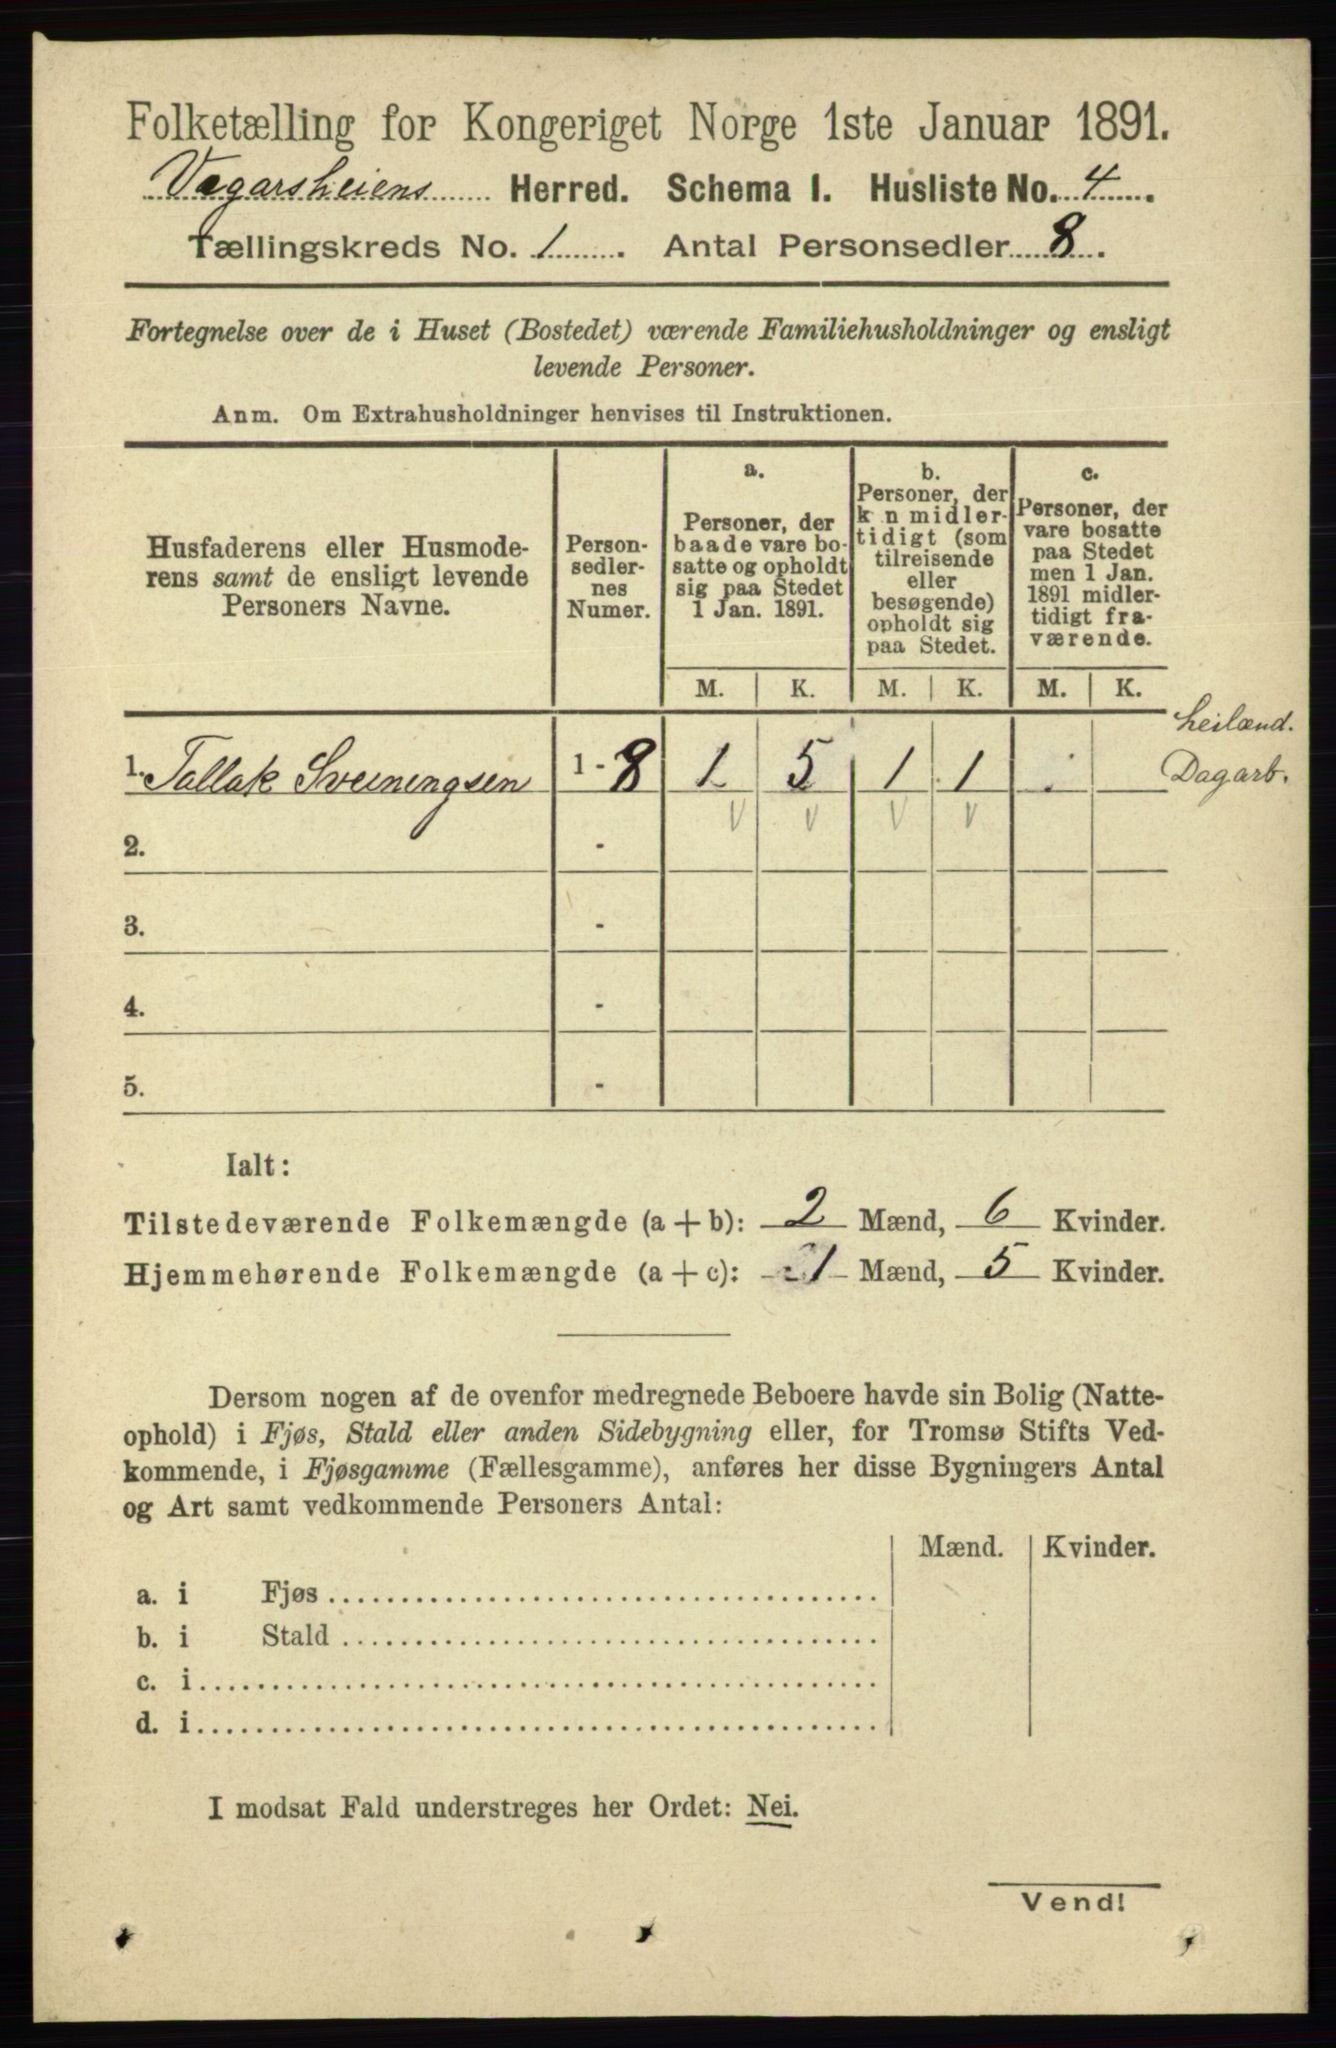 Folketælling for Kongeriget Norge 1ste Januar 1891.
Vegarsheiens Herred. Schema I. Husliste No. 4.
Tællingskreds No. 1. Antal Personsedler 8.
Fortegnelse over de i Huset (Bostedet) værende Familiehusholdninger og ensligt
levende Personer.
Anm. Om Extrahusholdninger henvises til Instruktionen.
Husfaderens eller Husmode-
rens samt de ensligt levende
Personers Navne.
Person-
sedler-
nes
Numer.
a.
Personer, der
baade vare bo-
satte og opholdt
sig paa Stedet
1 Jan. 1891.
b.
Personer, der
k n midler-
tidigt (som
tilreisende
eller
besøgende)
opholdt sig
paa Stedet.
c.
Personer, der
vare bosatte
paa Stedet
men 1 Jan.
1891 midler-
tidigt fra-
værende.
M. K. M. K. M. K.
Leilænd.
1. Tallak Sveiningsen 1 - 8 1 5 1 1 Dagarb.
2. -
3. -
4. -
5. -
Ialt:
Tilstedeværende Folkemængde (a + b): 2 Mænd, 6 Kvinder.
Hjemmehørende Folkemængde (a + c): 1 Mænd, 5 Kvinder.
Dersom nogen af de ovenfor medregnede Beboere havde sin Bolig (Natte-
ophold) i Fjøs, Stald eller anden Sidebygning eller, for Tromsø Stifts Ved-
kommende, i Fjøsgamme (Fællesgamme), anføres her disse Bygningers Antal
og Art samt vedkommende Personers Antal:
Mænd. Kvinder.
a. i Fjøs
b. i Stald
c. i
d. i
I modsat Fald understreges her Ordet: Nei.
Vend!